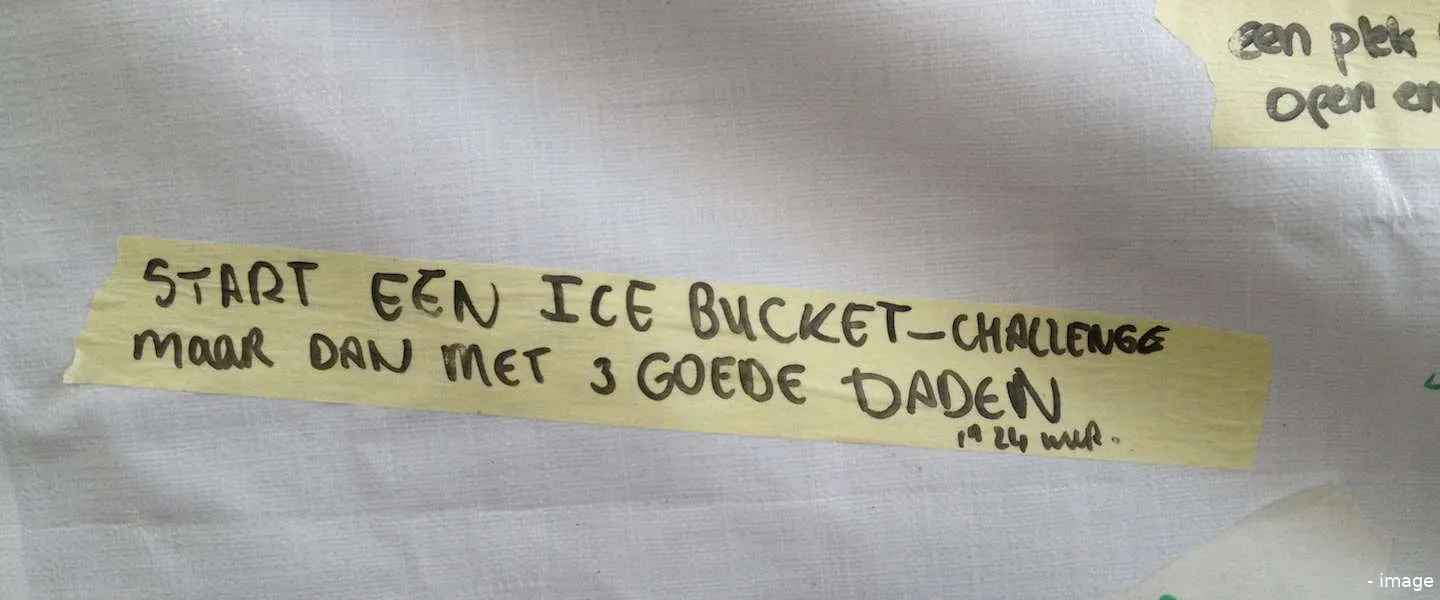 een plek
open en
START EEN ICE BUCKET-CHALLENGE
MAAR DAN MET 3 GOEDE DADEN
in 24 uur.
- image